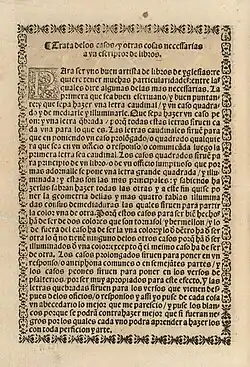 Trata delos casos y otras cosas necessarias
a vn escriptor de libros.
PAra ser vno buen artista de libros de yglesia: re
quiere tener muchas particularidades: entre la
quales dire algunas delas mas necessarias. La
primera que sea buen escriuano y buen puntan
te: y que sepa hazer vna letra caudinal / y vn caso quadrado
y de mediarle y illuminarle. Que sepa hazer vn caso pe
on: y vna letra qbrada / y porq todas estas letras siruen ca
da vna para lo que es. Las letras caudinales siruen para
que en poniendo vn caso prolongado, o quadrado qualquie
ra que sea en vn officio o responso / o comunicada luego la
primera letra sea caudinal. Los casos quadrados siruen pa
ra principio de vn libro: o de vn officio sumptuoso que por
mas adornalle se pone vna letra grande quadrada / y illu
minada: y estas son las mas principales: y sabiendo ha
zerlas sabran hazer todas las otras y a este fin quise po
ner la geometria dellas y mas quatro tablas illumina
das conlas demediaduras las quales siruen para partir
la color vna de otra. Porq estos casos para ser biẽ hechos
hã de ser de dos colores que son rosasol / y bermellon / y lo
de fuera del caso ha de ser la vna color y lo dẽtro ha d ser
otra lo q no tiene ninguno delos otros casos porq hã d ser
illuminados d vna color: excepto q el mesmo caso ha de ser
de otra. Los casos prolongados siruen para poner en vn
responso / o antiphona comunes o en semejãtes partes / y
los casos peones siruen para poner en los versos de
psalterios: por ser muy apropiados para este efecto. y las
letras quebradas siruen para los versos que vienen des
pues delos officios / o responsos y assi yo puse de cada cosa
vn abecedario lo mejor que me parescio / y puse los blan
cos porque se podrã contrahazer mejor que si fueran ne
gros por los quales cada vno podra aprender a hazer los
con toda perficion y arte.